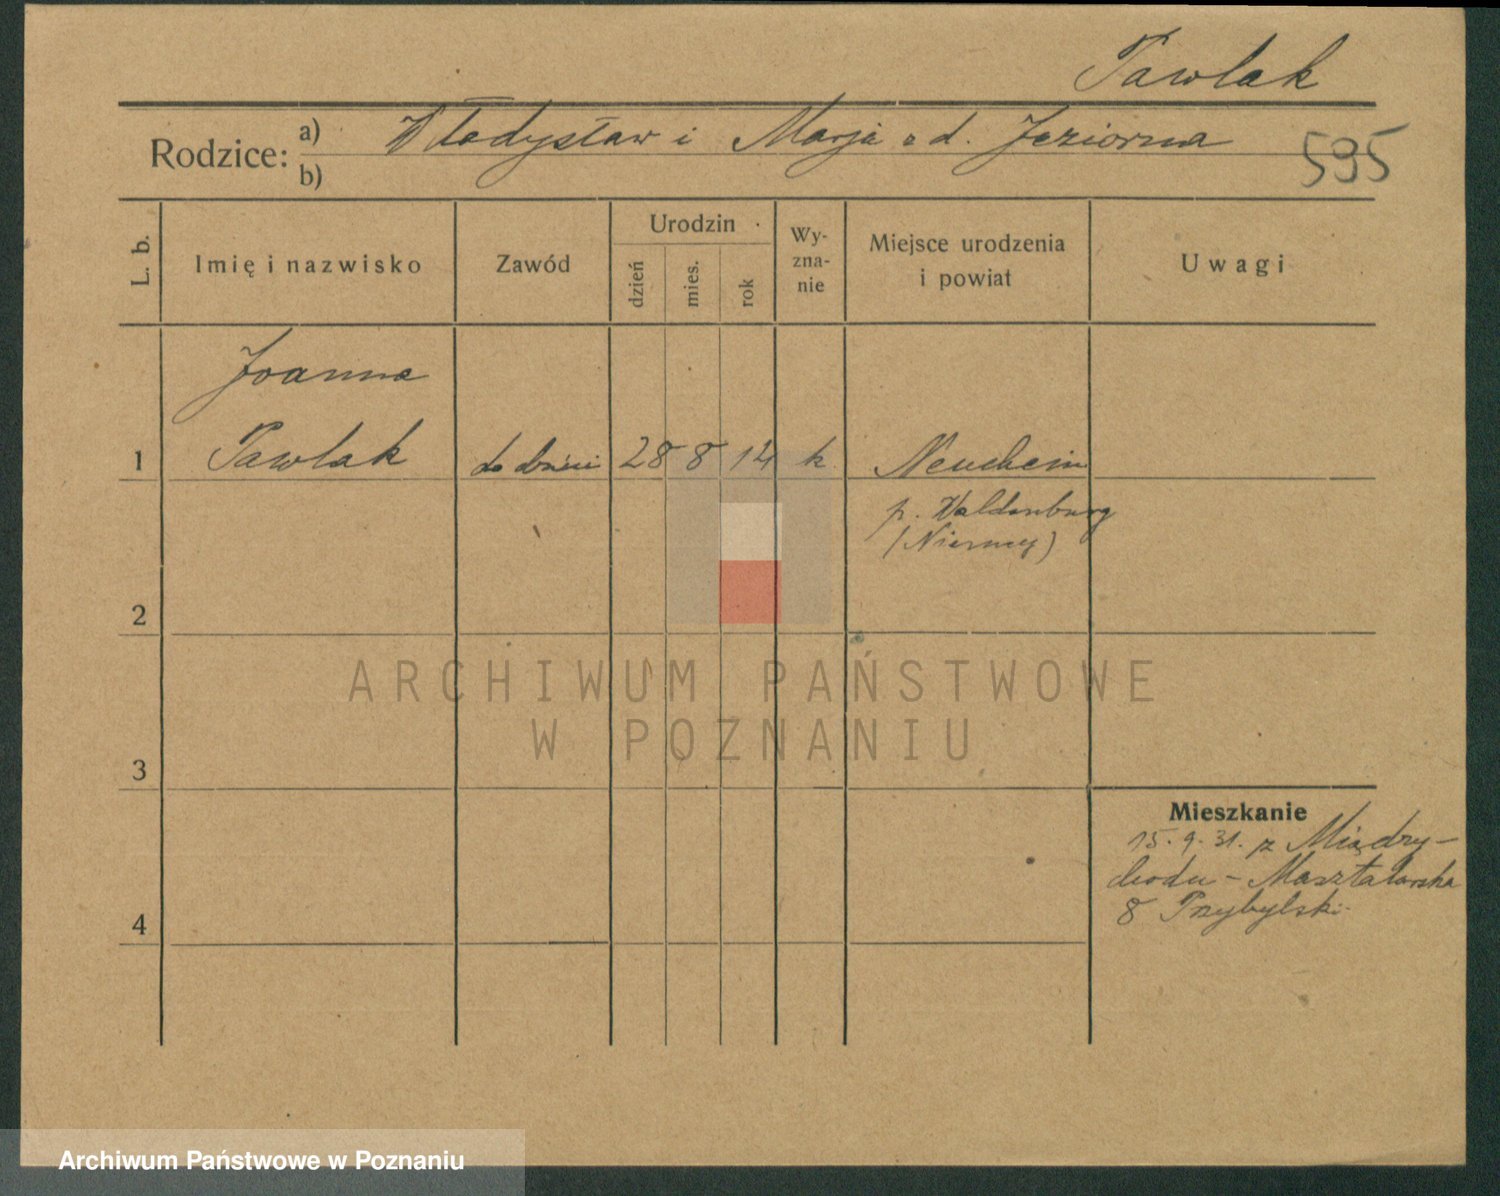 Pawlak
Rodzice: a) Władysław i Marja z d. Jeziorna
b)
595
L. b.
Imię i nazwisko
Zawód
Urodzin
dzień
mies.
rok
Wy-
zna-
nie
Miejsce urodzenia
i powiat
Uwagi
Joanna
1 Pawlak do dzieci 28 8 14 k. Neuhein
p. Waldenburg
(Niemcy)
2
ARCHIWUM PAŃSTWOWE
W POZNANIU
3
Mieszkanie
15.9.31. z Między-
chodu - Masztalarska
8 Przybylski
4
Archiwum Państwowe w Poznaniu